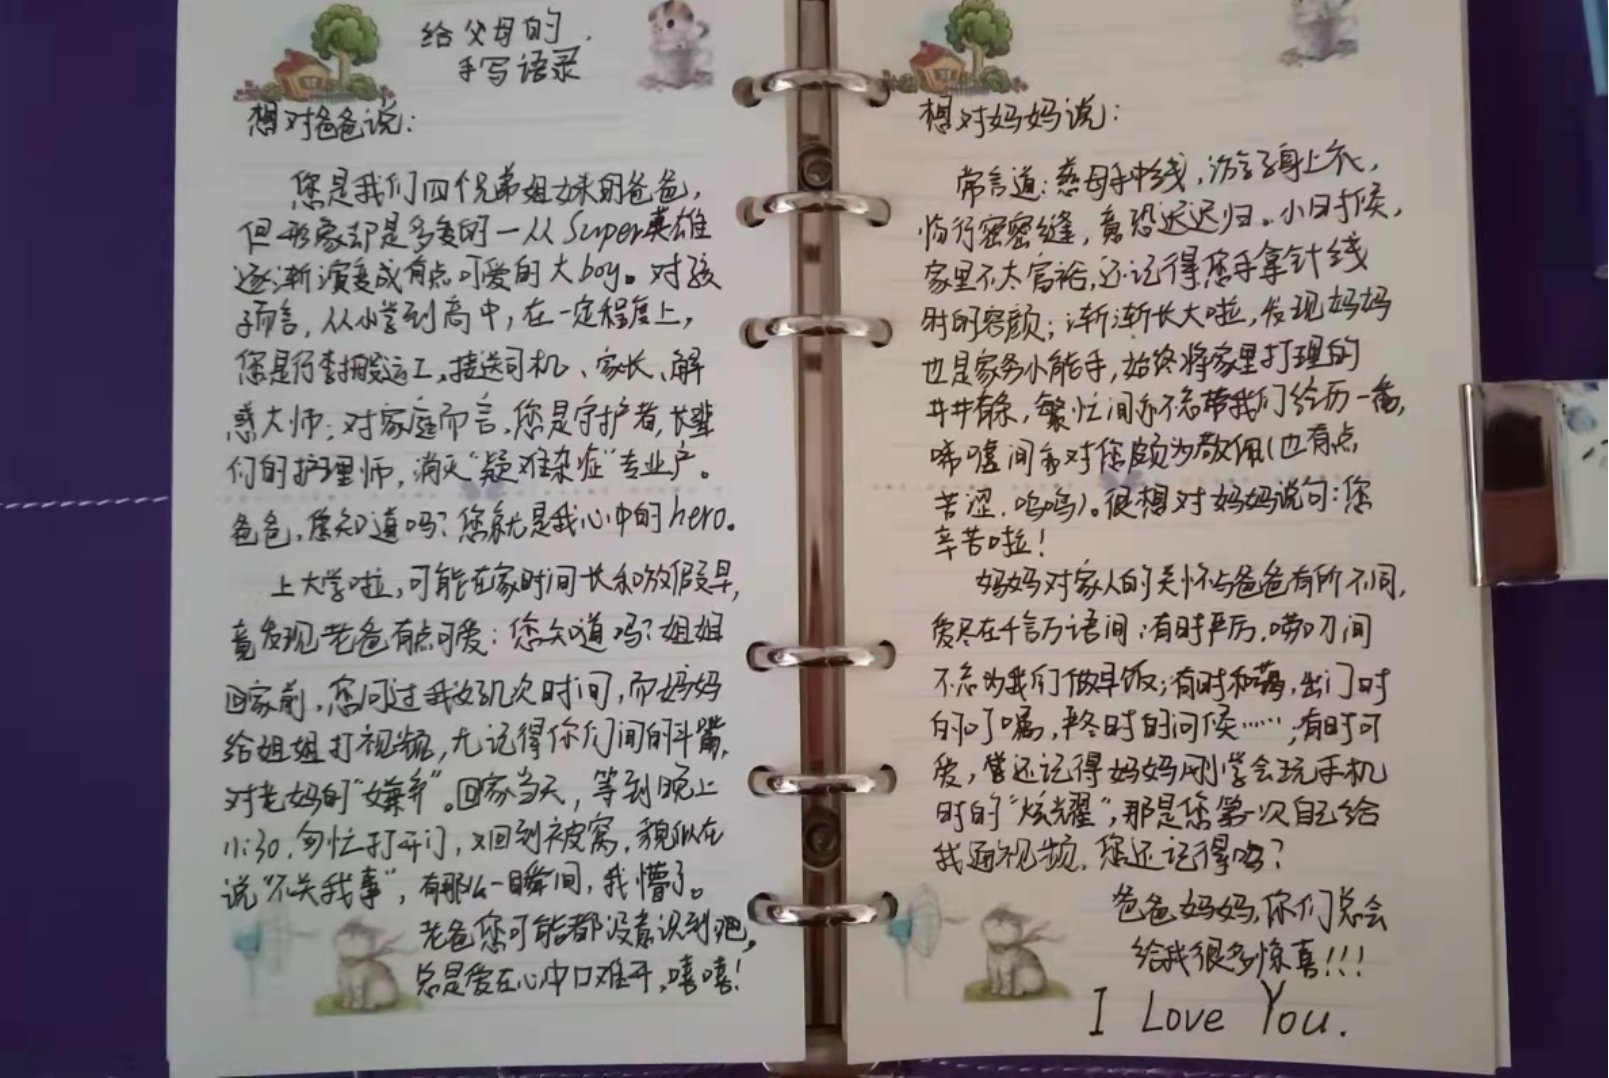 给父母的
手写语录
想对爸爸说：
您是我们四个兄弟姐妹的爸爸，
但形象却是多变的—从Super英雄
逐渐演变成有点可爱的大boy。对孩
子而言，从小学到高中，在一定程度上，
您是行李搬运工、接送司机、家长、解
惑大师；对家庭而言，您是守护者，长辈
们的护理师，消灭“疑难杂症”专业户。
爸爸，您知道吗？您就是我心中的hero。
上大学啦，可能在家时间长和放假早，
竟发现老爸有点可爱：您知道吗？姐姐
回家前，您问过我好几次时间，而妈妈
给姐姐打视频，尤记得你们间的斗嘴，
对老妈的“嫌弃”。回家当天，等到晚上
11:30，匆忙打开门，又回到被窝，貌似在
说“不关我事”，有那么一瞬间，我懵了。
老爸您可能都没意识到吧，
总是爱在心中口难开，嘻嘻！
想对妈妈说：
常言道：慈母手中线，游子身上衣，
临行密密缝，意恐迟迟归。小时候，
家里不太富裕，还记得您手拿针线
时的容颜；渐渐长大啦，发现妈妈
也是家务小能手，始终将家里打理的
井井有条，繁忙间亦不忘带我们经历一番，
唏嘘间亦对您颇为敬佩（也有点
苦涩，呜呜）。很想对妈妈说句：您
辛苦啦！
妈妈对家人的关怀与爸爸有所不同，
爱尽在千言万语间；有时严厉，唠叨间
不忘为我们做早饭；有时和蔼，出门时
的叮嘱，严冬时的问候……；有时可
爱，曾还记得妈妈刚学会玩手机
时的“炫耀”，那是您第一次自己给
我通视频，您还记得吗？
爸爸妈妈，你们总会
给我很多惊喜！！！
I Love You.